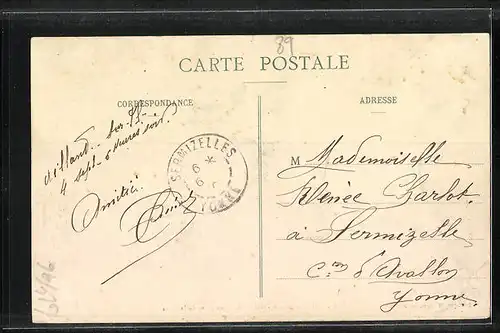 89
CARTE POSTALE
CORRESPONDANCE
ADRESSE
4 sept - 6 heures soir.
Amitiés
SERMIZELLES
6 *
6
YONNE
M Mademoiselle
Renée Charlot
à Sermizelle
Con d'Avallon
Yonne